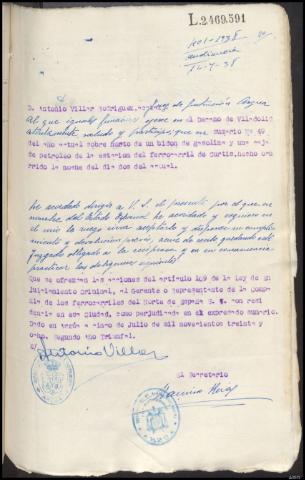 L.2469.591
401-1938
12-7-38
D. Antonio Villar Rodriguez, Juez de
Al que iguales funciones ejerce en el Decano de Valladolid
atentamente saludo y participo: que en sumario Nº 49
del año actual sobre hurto de un bidon de gasolina y una caja
de petroleo de la estacion del ferrocarril de Curtis, hecho ocu-
rrido la noche del dia dos del actual.
He acordado dirigir a V. S. el presente por el que en
nombre del Estado Español he acordado y requiero en
el mio le ruego sirva aceptarlo y disponer su cumpli-
miento y devolucion
Juzgado obligado a la reciproca y en su consecuencia
practicar las diligencias siguientes
Que se ofrezcan las acciones del articulo 109 de la Ley de En
juiciamiento criminal, al Gerente o representante de la Compa-
ñia de los ferrocarriles del Norte de España S. A. con resi
dencia en esa ciudad, como perjudicada en el expresado sumario.
Dado en Arzúa a cinco de Julio de mil novecientos treinta y
ocho. Segundo Año Triunfal.
Antonio Villar
El Secretario